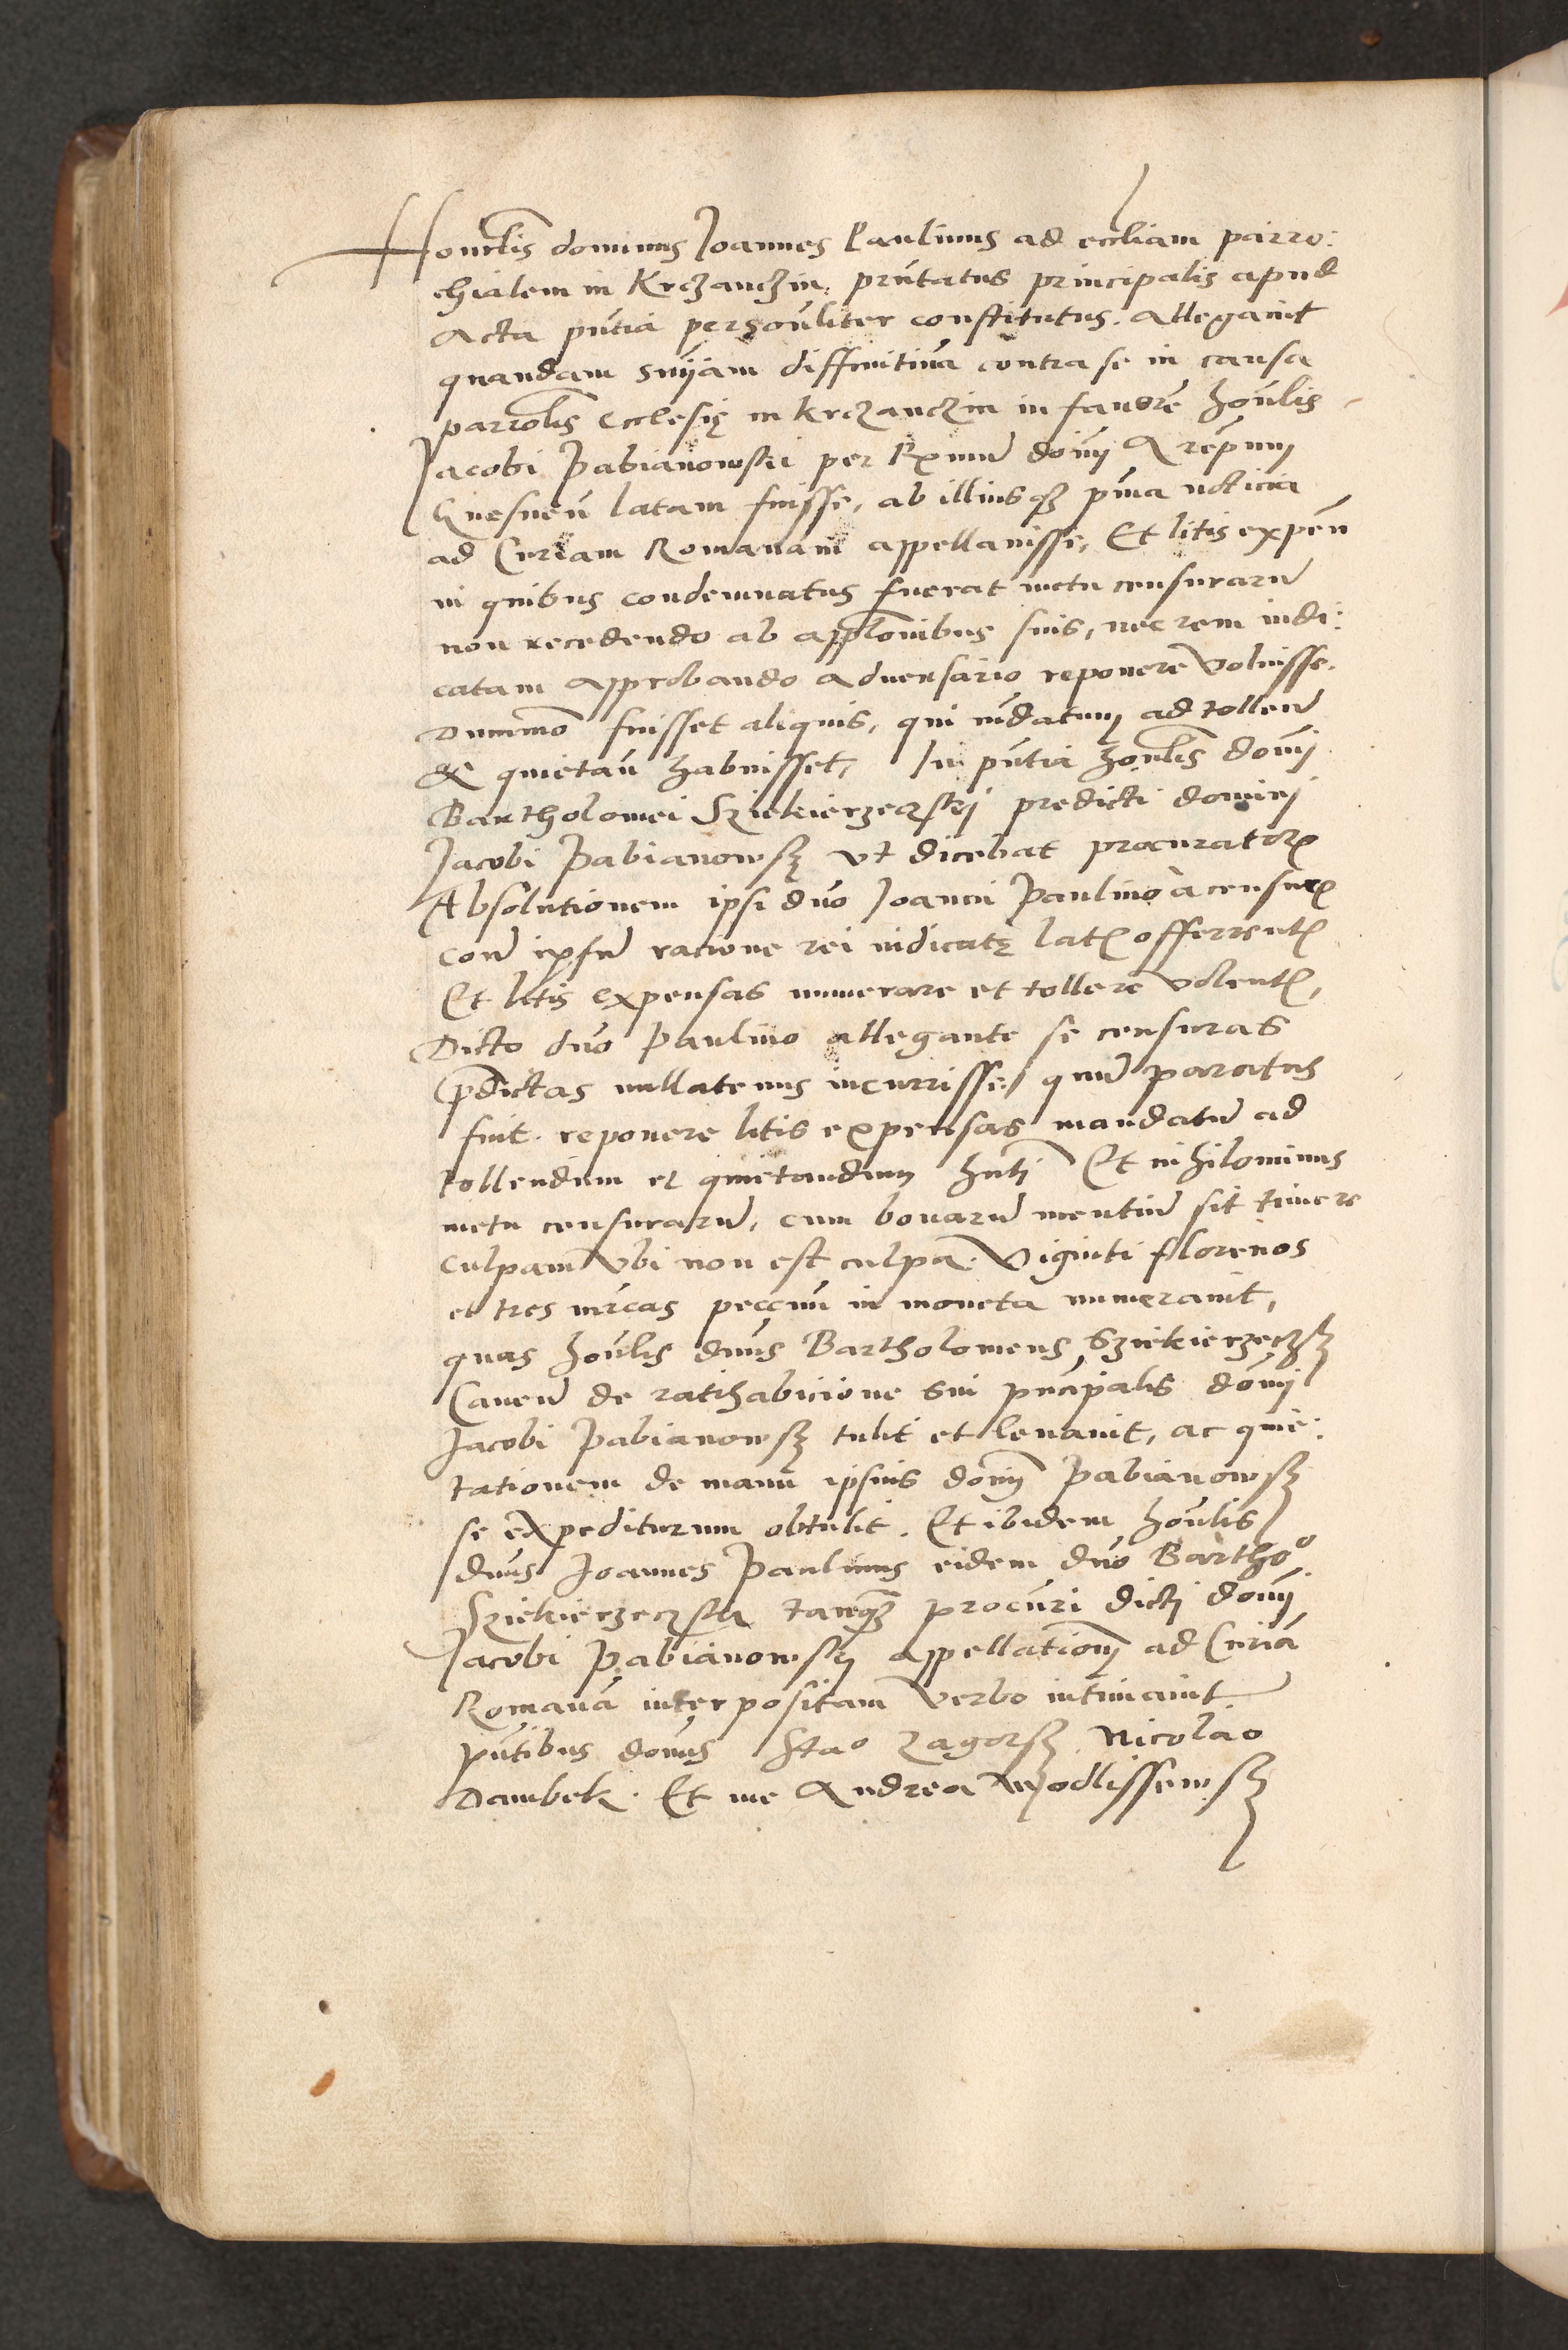 Honorlis dominus Joannes Paulinus ad eccliam parro:
chialem in Krczanczin, pruntatus principalis apud
Acta puntia personliter constitutus. Allegavit
quandam sniam diffinitiva contra se in causa
parrolis Ecclesię in Krczanczin in favore honlis
Jacobi Pabianowskii per Rmum domi Arepum
Gnesnen latam fuisse, ab illiusqz pma noticia
ad Curiam Romanam appellavisse, Et litis expen
in quibus condemnatus fuerat metu censuraru
non recedendo ab applonibus suis, nec rem iudi:
catam approbando adversario reponere voluisse.
Dummo fuisset aliquis, qui mdatum ad tollen
& quietan habuisset, In puntia honlis domi
Bartholomei Sziekierzeczskij predicti dominj
Jacobi Pabianowsk vt dicebat procurator
Absolutionem ipsi dno Joanni Paulino à censur
con ipsu racione rei iudicatę lat offerent
Et litis expensas numerare et tollere volent,
Dicto dno Paulino allegante se censuras
pdictas nullatenus incurrisse, quin paratus
fuit reponere litis expensas mandatu ad
tollendum et quietandum hnti Et nihilominus
metu censuraru, cum bonaru mentiu sit timere
culpam vbi non est culpa. Viginti florenos
et tres mrcas peccun in moneta numeravit,
quas honlis dnus Bartholomeus Sziekierzeczsk
Caven de ratihabicione sui pncipalis domi
Jacobi Pabianowsk tulit et levavit, ac quie:
tationem de manu ipsius domi Pabianowsk
se expediturum obtulit. Et ibidem honlis
dnus Joannes Paulinus eidem dno Bartho°
Sziekierzeczsk tanqz procuri dicti domi
Jacobi Pabianowskij appellationem ad Curia
Romana interpositam verbo intimavit
puntibus domis Stao Zagorsk, Nicolao
Dambek. Et me Andrea Modlissewsk